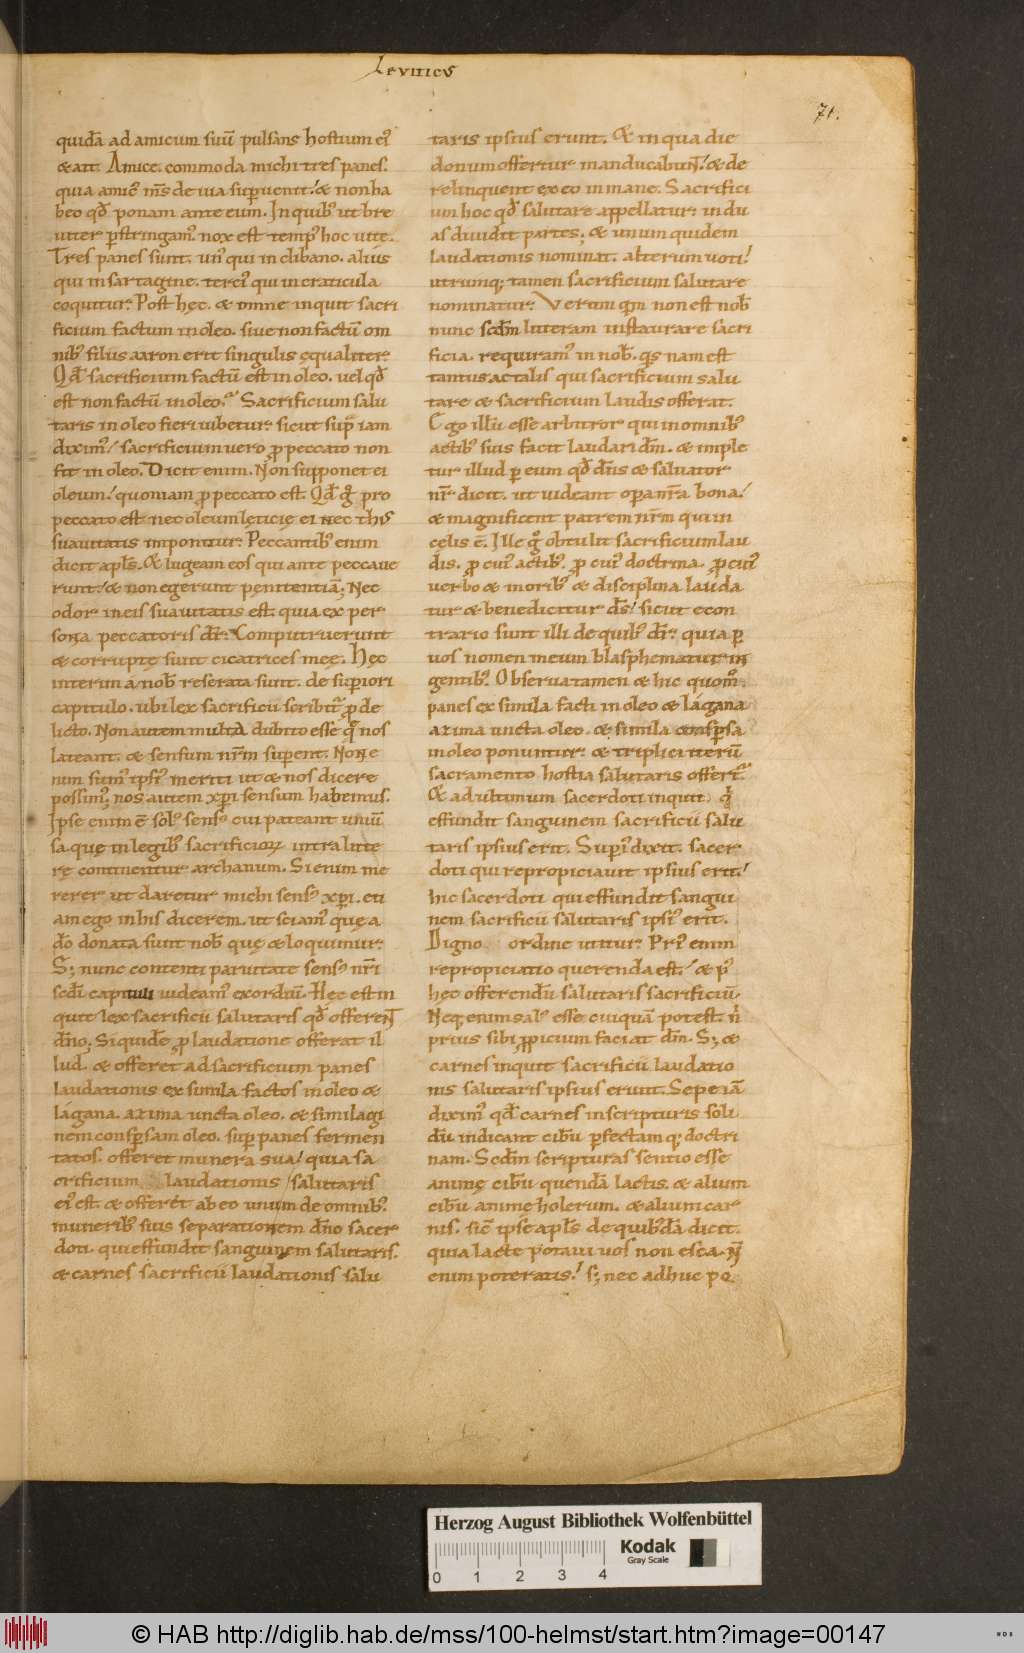 Leviticus
71.
quidā ad amicum suū pulsans hostium eiꝰ
& ait. Amice. commoda michi tres panes.
quia amicꝰ mꝰs de uia supuenit. & non ha
beo qđ ponam ante eum. In quibꝰ ut bre
uiter pstringamꝰ. nox est tempꝰ hoc uite.
Tres panes sunt. unꝰ qui in clibano. alius
qui in sartagine. terciꝰ qui in craticula
coquitur. Post hęc. & omne inquit sacri
ficium factum in oleo. siue non factū om
nibꝰ filiis aaron erit singulis equaliter.
Qđ sacrificium factū est in oleo. uel qđ
est non factū in oleo? Sacrificium salu
taris in oleo fieri iubetur. sicut supͣ iam
diximꝰ/ sacrificium uero p peccato non
fit in oleo. Dicit enim. Non supponet ei
oleum/ quoniam p peccato est. Qđ gͦ pro
peccato est nec oleum lęticię ei nec thꝰ
suauitatis imponitur. Peccantibꝰ enim
dicit apłs. & lugeam eos qui ante peccaue
runt/ & non egerunt pęnitentiā; Nec
odor in eis suauitatis est. quia ex per
sona peccatoris dr̄. Computruerunt
& corruptę sunt cicatrices meę. Hęc
interim a nob reserata sunt. de supiori
capitulo. ubi lex sacrificii scribitͬ p de
licto. Non autem multa dubito esse qͥ nos
lateant. & sensum nr̄m supent. Non e
nim sumꝰ ipsiꝰ meriti ut & nos dicere
possimꝰ; nos autem xp̄i sensum habemus.
Ipse enim ē solꝰ sensꝰ cui pateant uniū
sa. quę in legibꝰ sacrificioꝝ intra litte
rę continentur archanum. Si enim me
rerer ut daretur michi sensꝰ xp̄i. eti
am ego in his dicerem. ut sciamꝰ quę a
dō donata sunt nob quę & loquimur.
S; nunc contenti paruitate sensꝰ nr̄i
scđi capituli uideamꝰ exordiū. Hęc est in
quit lex sacrificii salutaris qđ offerent̄
dn̄o; Si quidē p laudatione offerat il
lud. & offeret ad sacrificium panes
laudationis ex simila factos in oleo &
lágana. azima uncta oleo. & similagi
nem conspsam oleo. sup panes fermen
tatos. offeret munera sua/ quia sa
crificium laudationis/ salutaris
eiꝰ est. & offerét ab eo unum de omnibꝰ
muneribꝰ suis separationem dn̄o sacer
doti. qui effundit sanguinem salutaris.
& carnes sacrificii laudationis salu
taris ipsius erunt. & in qua die
donum offertur manducabunt̄. & de
relinquent ex eo in mane. Sacrifici
um hoc qđ salutare appellatur. in du
as diuidit partes; & unum quidem
laudationis nominat. alterum uoti/
utrunq; tamen sacrificium salutare
nominatur. Verum qm non est nob
nunc scđm litteram instaurare sacri
ficia. requiramꝰ in nob. qs nam est
tantus ac talis qui sacrificium salu
tare & sacrificium laudis offerat.
Ego illū esse arbitror qui in omnibꝰ
actibꝰ suis facit laudari dm̄. & imple
tur illud p eum qđ dn̄s & saluator
nr̄ dicit. ut uideant opa nr̄a bona/
& magnificent patrem nr̄m qui in
cęlis ē. Ille gͦ obtulit sacrificium lau
dis. p cuiꝰ actibꝰ. p cuiꝰ doctrina. p cuiꝰ
uerbo & moribꝰ & disciplina lauda
tur & benedicitur ds̄/ sicut econ
trario sunt illi de quibꝰ dr̄. quia p
uos nomen meum blasphematur in
gentibꝰ. Obserua tamen & hic quomͦ.
panes ex simila facti in oleo & lágana
azima uncta oleo. &; simila conspsa
in oleo ponuntur. & triplici iterū
sacramento hostia salutaris offertͬ.
& ad ultimum sacerdoti inquit qͥ
effundit sanguinem sacrificii salu
taris ipsius erit. Supiꝰ dixit. sacer
doti qui repropiciauit ipsius erit/
hic sacerdoti qui effundit sangui
nem sacrificii salutaris ipsiꝰ erit.
Digno ordine utitur. Priꝰ enim
repropiciatio querenda est/ & pꝰ
hęc offerendū salutaris sacrificiū.
Neq; enim saluꝰ esse cuiquā potest. nͥ
prius sibi ppicium faciat dm̄. S; &
carnes inquit sacrificii laudatio
nis salutaris ipsius erunt. Sepe iā
diximꝰ qđ carnes in scripturis soli
dū indicant cibū pfectam q; doctri
nam. Scđm scripturas sentio esse
animę cibū quendā lactis. & alium
cibū animę holerum. & alium car
nis. sic̄ ipse apłs de quibꝰdā dicit.
quia lacte potaui uos non esca. n̄
enim poteratis/ s; nec adhuc po
Herzog August Bibliothek Wolfenbüttel
Kodak
Gray Scale
0 1 2 3 4
© HAB http://diglib.hab.de/mss/100-helmst/start.htm?image=00147